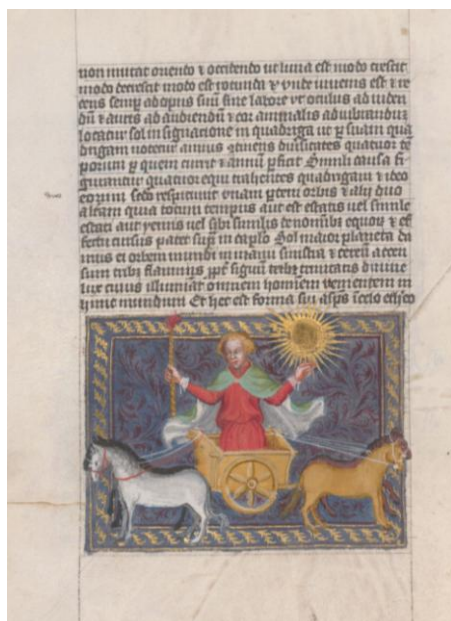 non mutat oriendo ⁊ occidendo ut luna est modo crescit
modo decrescit modo est rotunda ⁊ inde iuvenis est ⁊ re
cens semp ad opus suũ sine labore ut oculus ad viden
dũ ⁊ auris ad audiendũ ⁊ cor animalis
locatur sol in figuratione in quadriga ut p suam qua
drigam notetur annus diversitates quatuor tẽ
porum p quem currit ⁊ annũ pficit Simili causa fi
gurantur quatuor equi trahentes quadrigam ⁊ ideo
eorum respiciunt unam ptem orbis ⁊ alii duo
aliam quia totum tempus aut est estatis vel simile
estati aut yemis vel sibi similis de nominibz equorũ ⁊ ef
fectu cursus patet in caplo Sol maior planeta
orbem mundi in manu sinistra ⁊ cereũ accen
sum tribz flammis signũ trinitatis divine
lux cuius illuminat omnem hominem venientem in
hunc mundum Et hec est forma sui in celo